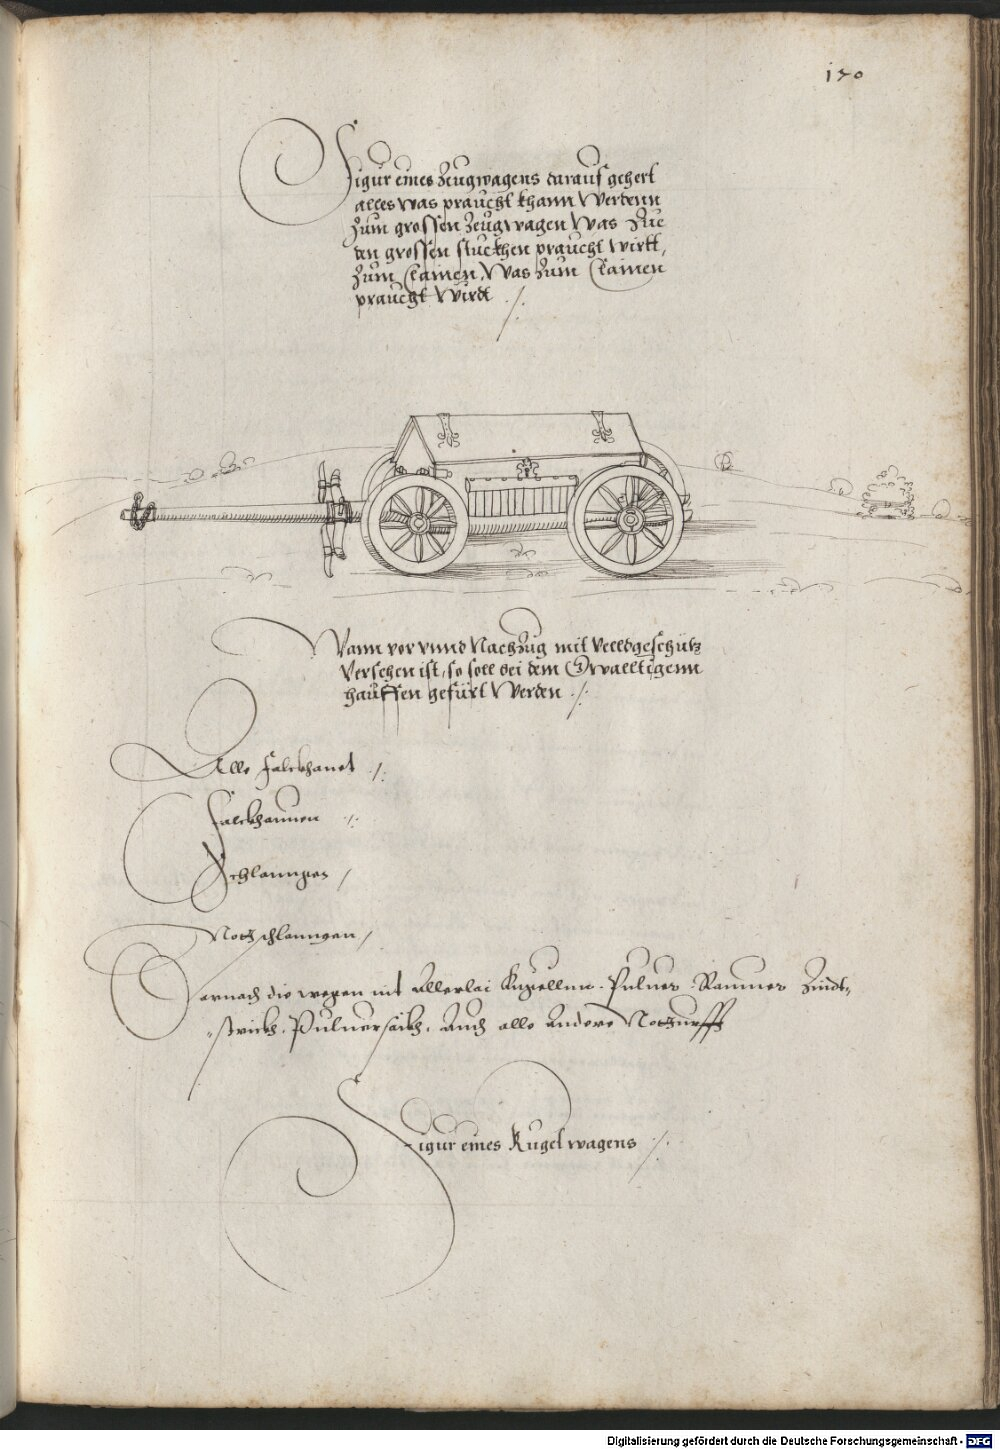 170
Figur eines Zeugwagens darauf gehert
alles was praucht khann Werdenn
Zum grossen Zeugwagen Was Zue
den grossen stuckhen praucht wirtt,
Zum Clainen, Was Zum Clainen
praucht Wirdt ./.
Wann vor vnnd Nachzug mit Velldgeschütz
Versehen ist, so soll bei dem Gwalltigenn
hauffen gefürt Werden ./.
Alle Falckhanet ./.
Falckhannen ./.
Schlanngen /
Notschlanngen /
Darnach die wegen mit Allerlai Kugellnn. Puluer. Rannes Zindt=
=strickh. Puluersäckh. Auch alle Andere Notturfft
Figur eines Kugel wagens ./.
Digitalisierung gefördert durch die Deutsche Forschungsgemeinschaft - DFG